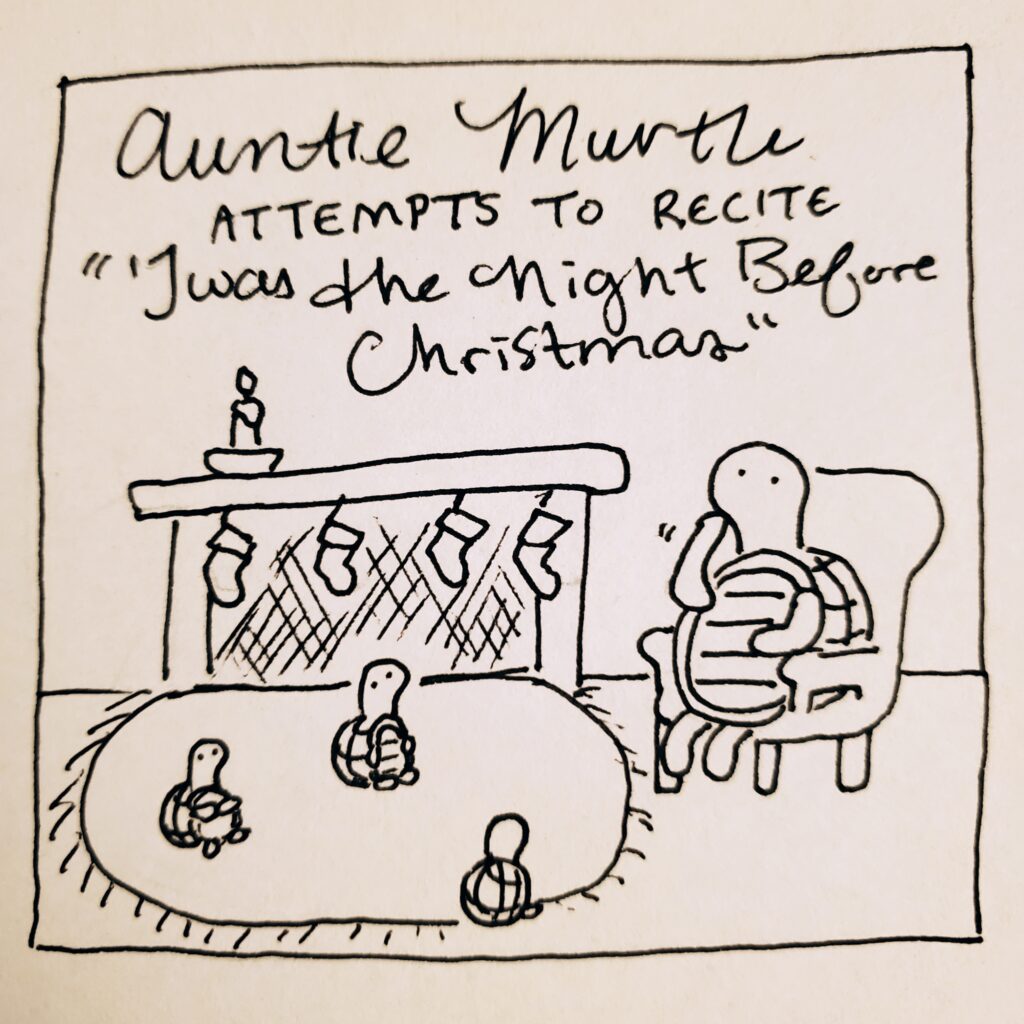 Auntie Murtle
ATTEMPTS TO RECITE
"'Twas the Night Before
Christmas"